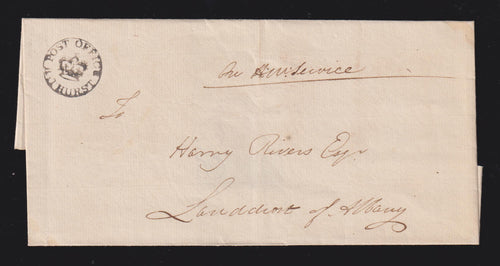 POST OFFICE
BATHURST
On HM Service
To
Harry Rivers Esqr
Landdrost of Albany